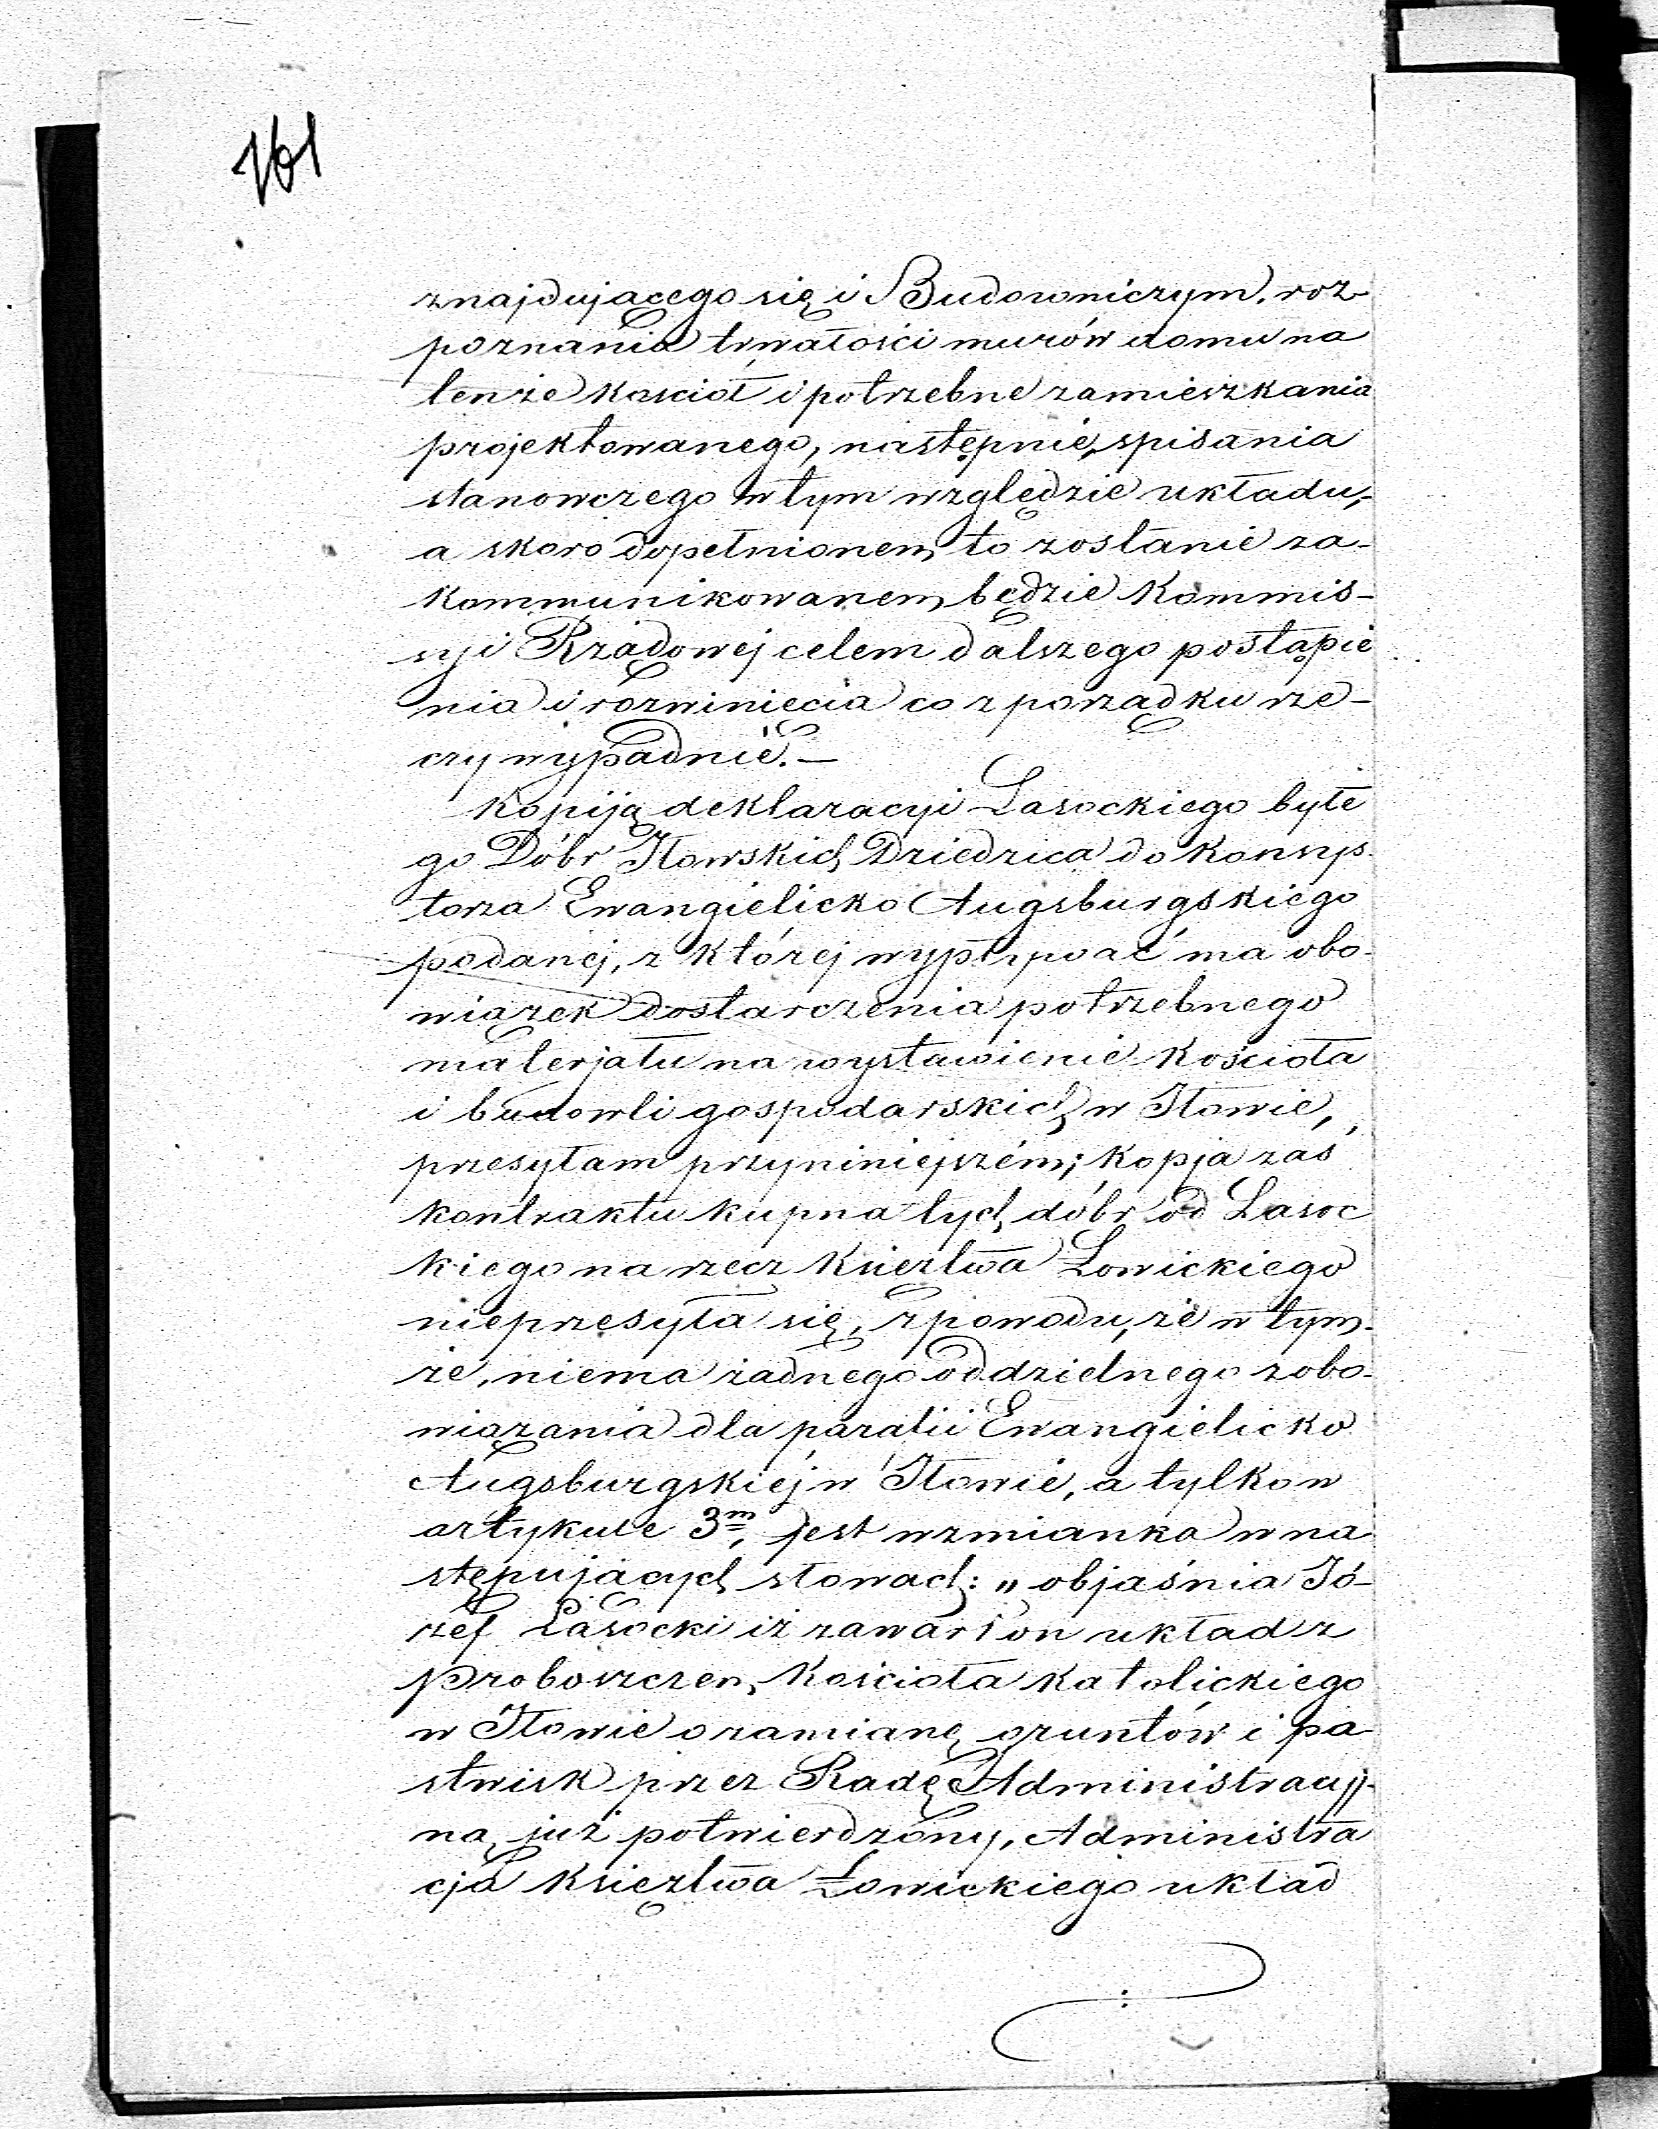 161
znajdującego się i Budowniczym, roz-
poznania trwałości murów domu na
tenże kościół i potrzebne zamieszkania
projektowanego, następnie spisania
stanowczego w tym względzie układu,-
a skoro dopełnionem to zostanie za-
kommunikowanem będzie Kommis-
syi Rządowej celem dalszego postąpie
nia i rozwinięcia co z porządku rze-
czy wypadnie.—
Kopiją deklaracyi Lasockiego byłe
go Dóbr Iłowskich Dziedzica do Konsys-
torza Ewangielicko Augsburgskiego
podanej, z której wypływać ma obo-
wiązek dostarczenia potrzebnego
materjału na wystawienie Kościoła
i budowli gospodarskich w Iłowie,
przesyłam przyniniejszém; Kopja zaś
kontraktu kupna tych dóbr od Lasoc
kiego na rzecz Księztwa Łowickiego
nieprzesyła się, z powodu, że w tym-
że, niema żadnego oddzielnego zobo-
wiązania dla parafii Ewangielicko
Augsburgskiej w Iłowie, a tylko w
artykule 3m, jest wzmianka w na
stępujących słowach: „objaśnia Jó-
zef Lasocki iż zawarł on układ z
Proboszczem Kościoła Katolickiego
w Iłowie o zamianę gruntów i pa-
stwisk przez Radę Administracyj-
ną już potwierdzony, Administra
cja Księztwa Łowickiego układ